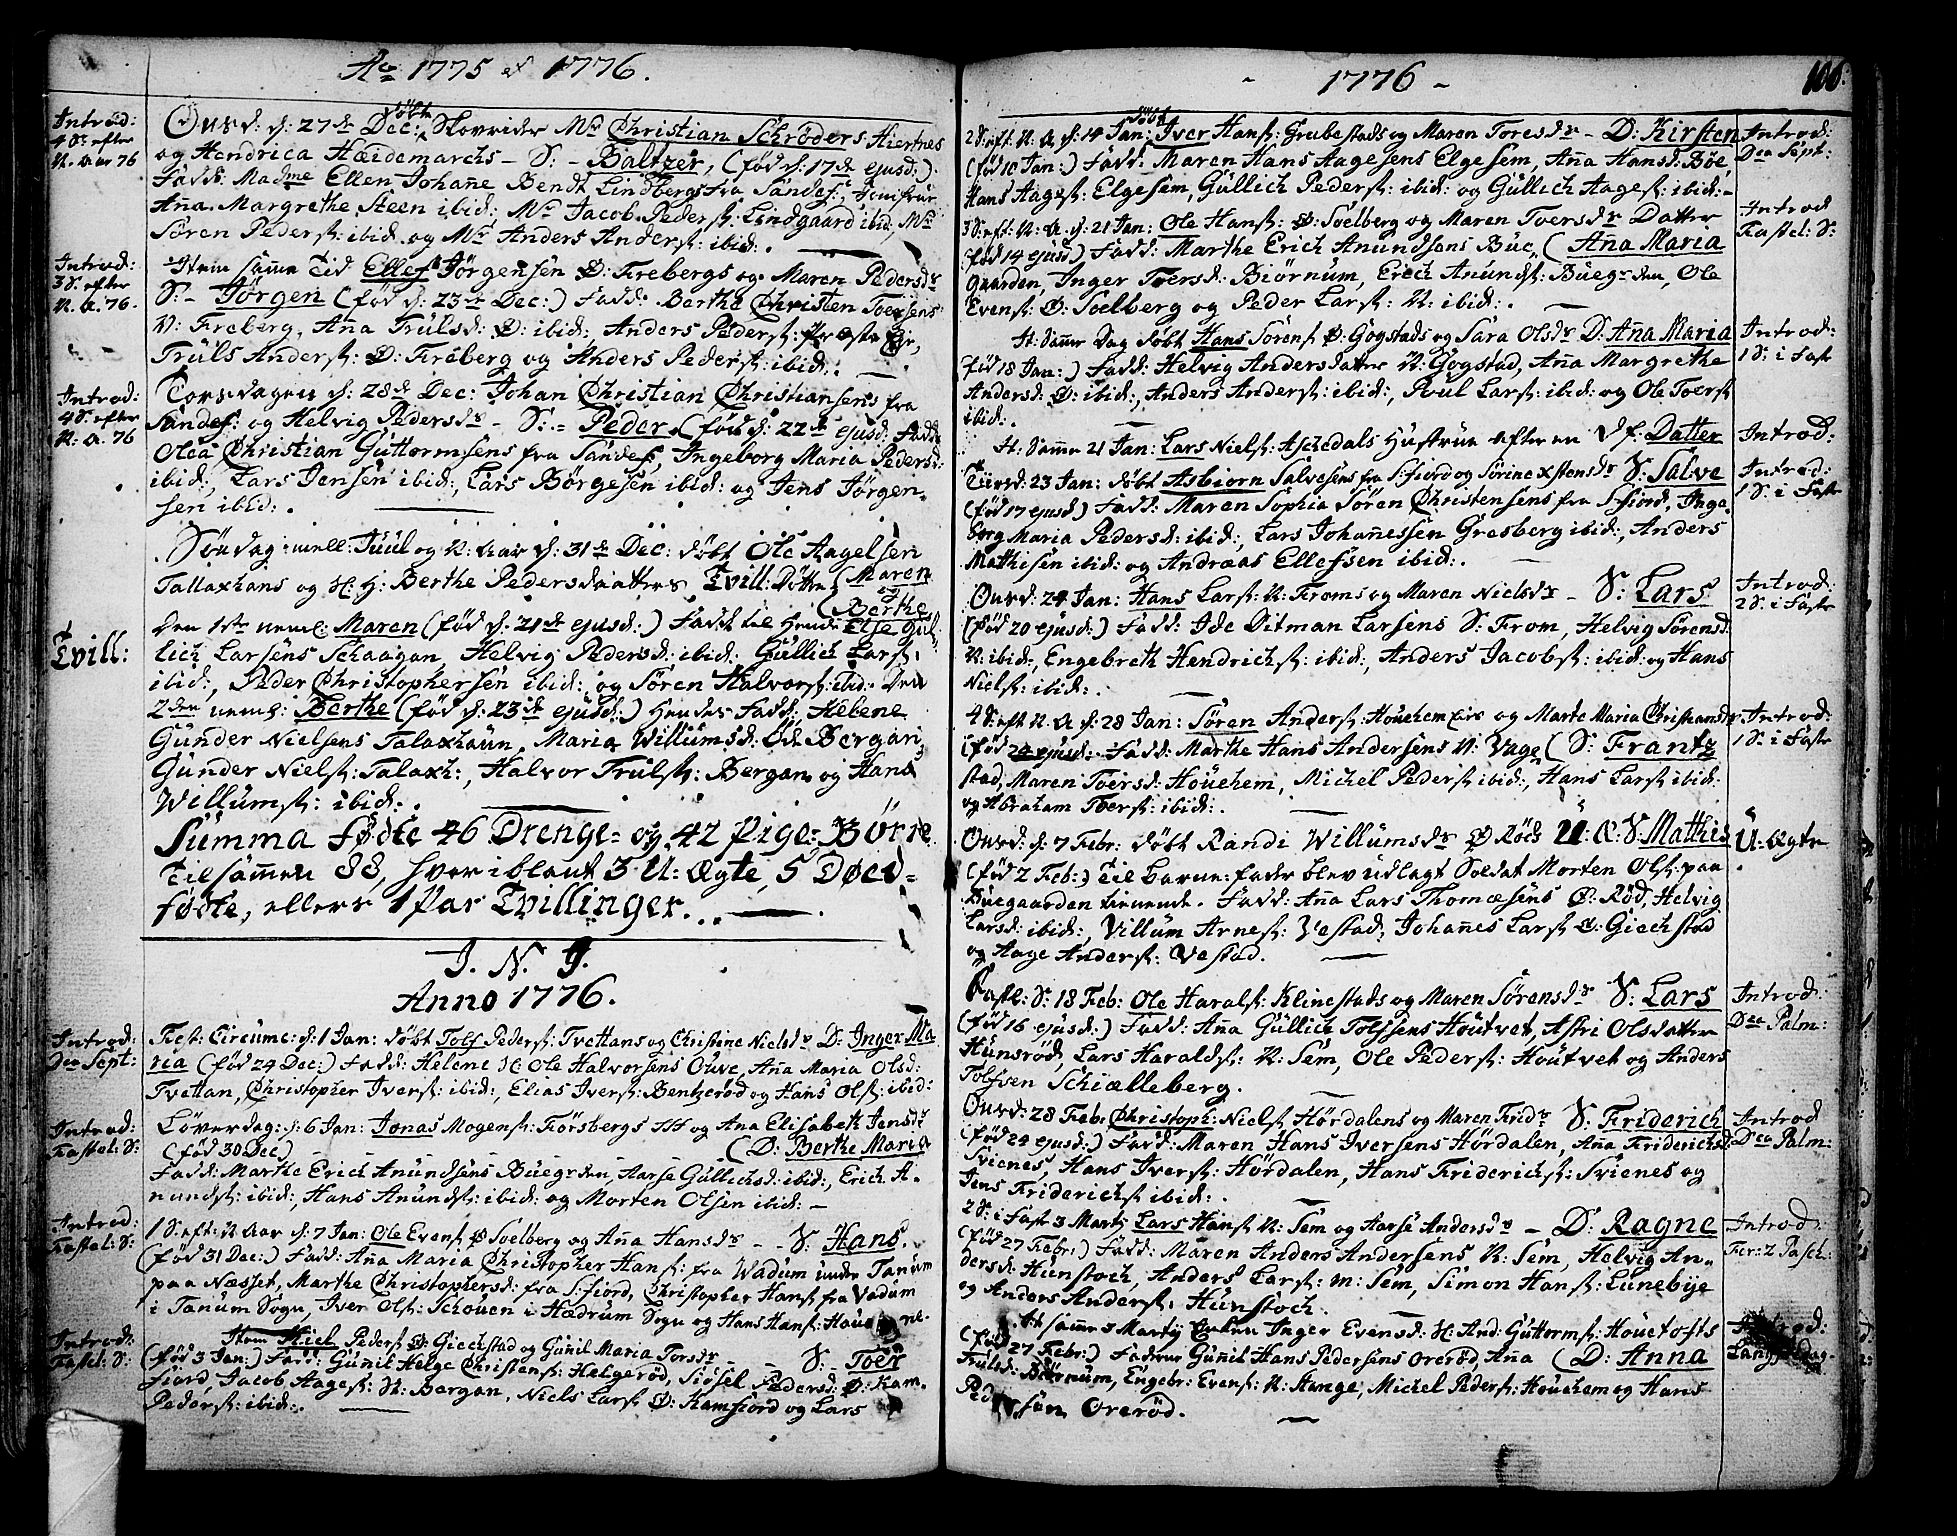 Ao 1775 et 1776.
Introd: 4 S: efter N. Aar 76
Onsd: d: 27de Dec: døbt Skovrider Mr Christian Schrøders Hiertnes
og Hendrica Heidemarchs – S: – Baltzer, (fød d: 17de ejusd:)
Fadd: Madme Ellen Johañe Bendt Lindbergs fra Sandef:, Jomfrue
Aña Margrethe Steen ibid:, Mr Jacob Peders: Lindgaard ibid:, Mr
Søren Peders: ibid: og Mr Anders Anders: ibid:.
Introd: 3 S: efter N. A. 76.
Item samme Tid Ellef Jørgensen Ø: Freberg og Maren Pedersdr
S: – Jørgen (fød d: 23de Dec:) Fadd: Berthe Christen Toersens
N: Freberg, Aña Trulsd: Ø: ibid:, Anders Peders:
Truls Anders: Ø: Freberg og Anders Peders: ibid:.
Introd: 4 S: efter N. A. 76
Torsdagen d: 28de Dec: Johan Christian Christiansens fra
Sandef: og Helvig Pedersdr – S: – Peder (fød d: 22de ejusd: Fadd:
Olea Christian Guttormsens fra Sandef:, Ingeborg Maria Pedersd:
ibid:, Lars Jensen ibid:, Lars Børgesen ibid: og Jens Jørgen-
sen ibid:.
Søndag mell: Juul og N: Aar d: 31de Dec: døbt Ole Aagesen
Tallaxhans og H: H: Berthe Pedersdaatters Tvill: Døttre (Maren
og
(Berthe
Tvill:
Den 1ste neml: Maren (fød d: 21de ejusd:) Fadd: til hende Else Gul-
lich Larsens Schaagan, Helvig Pedersd: ibid:, Gullich Lars:
ibid:, Peder Christophersen ibid: og Søren Halvors: ibid:. Den
2den neml: Berthe (fød d: 23de ejusd:) Hendes Fadd: Helene
Gunder Nielsens Talaxhaun, Maria Willumsd: Ødr Bergan,
Gunder Niels: Talaxh:, Halvor Truls: Bergan og Hans
Willums: ibid:.
Summa fødte 46 Drenge- og 42 Pige-Børn
Tilsammen 88, hvoriblant 3 U: Ægte, 5 Død-
fødte, ellers 1 Par Tvillinger.
J. N. J.
Anno 1776.
Introd: Dca Sept:
Fest: Circumc: d: 1 Jan: døbt Tolf Peders: Tvettans og Christine Nielsdr D: Inger Ma
ria (fød 24 Dec:) Fadd: Helene H: Ole Halvorsens Ouve, Aña Maria Olsd:
Tvettan, Christopher Ivers: ibid:, Elias Ivers: Bentzerød og Hans Ols: ibid:
Introd: Fastel: S:
Løverdag: d: 6 Jan: Jonas Mogens: Førsbergs og Ana Elisabeth Jensdr
(fød 30 Dec) (D: Berthe Maria
Fadd: Marthe Erich Anundsens Buegrden, Aarse Gullichsd: ibid:, Erich A-
nunds: ibid:, Hans Anunds: ibid: og Morten Olsen ibid: –
Introd: Fastel: S:
1 S: eft: N Aar d: 7 Jan: Ole Evens: Ø Soelberg og Aña Hansdr – – S: Hans.
(fød 31 Dec:) Fadd: Aña Maria Christopher Hans: fra Wadum under Tanum
paa Næsset, Marthe Christophersd: fra S:fiord, Christopher Hans: fra Vadum
i Tanum Sogn, Iver Ols: Schouen i Hedrum Sogn og Hans Hans:
Introd: Fastel: S:
Item Kiel Peders: Ø: Giechstad og Gunil Maria Torsdr – – S: – Toer
(fød 3 Jan:) Fadd: Gunil Helge Christens: Helgerød, Sidsel Pedersd: Ø: Kam-
fiord, Jacob Aages: N: Bergan, Niels Lars: Ø: Kamfiord og Lars
Peders: ibid:.
– 1776 –
106:
2 S: eft: N: A d: 14 Jan: døbt Iver Hans: Grubestads og Maren Toresdr – D: Kirsten
Introd: Dca Sept:
(fød 10 Jan:) Fadd: Maren Hans Aagesens Elgesem, Aña Hansd: Bøe,
Hans Aages: Elgesem, Gullich Peders: ibid: og Gullich Aages: ibid: –
3 S: eft: N: A. d: 21 Jan: Ole Hans: Ø: Soelberg og Maren Toersdr Datter
Introd Fastel: S:
fød 14 ejusd) Fadd: Marthe Erich Anundsens Bue, (Aña Maria
gaarden, Inger Toersd: Biørnum, Erich Anunds: Buegrden, Ole
Evens: Ø: Soelberg og Peder Lars: N: ibid:.
It: Samme Dag døbt Hans Sørens: Ø: Gogstads og Sara Olsdr D: Aña Maria
Introd: 1 S: i Faste
fød 18 Jan:) Fadd: Helvig Andersdatter N: Gogstad, Aña Margrethe
Andersd: Ø: ibid:, Anders Anders: ibid:, Poul Lars: ibid: og Ole Toers:
ibid:.
It: Samme 21 Jan: Lars Niels: Aschedals Hustrue efter en df. Datter
Introd:
Tiirsd: 23 Jan: døbt Asbiorn Salvesens fra S:fiord og Sørine Xstensdr S: Salve
Introd: 1 S: i Faste
(fød 17 ejusd) Fadd: Maren Sophia Søren Christensens fra S:fiord, Inge-
borg Maria Pedersd: ibid:, Lars Johañessen Gresberg ibid:, Anders
Mathisen ibid: og Andreas Ellefsen ibid:.
Onsd: 24 Jan: Hans Lars: N: Froms og Maren Nielsdr – S: Lars
Introd: 2 S: i Faste
(fød 20 ejusd:) Fadd: Ide Ditman Larsens S: From, Helvig Sørensd:
N: ibid:, Engebreth Hendrichs: ibid:, Anders Jacobs: ibid: og Hans
Niels: ibid:.
4 S: eft N: A d: 28 Jan: Søren Anders: Houehem Eie og Marte Maria Christiansdr
Introd: 1 S: i Faste
(fød 24 ejusd:. Fadd: Marthe Hans Andersens N: Vage (S: Frantz
stad, Maren Toersd: Houehem, Michel Peders: ibid:, Hans Lars: ibid:
og Abraham Toers: ibid:.
Onsd: d: 7 Febr: døbt Randi Willumsdr Ø Røds U: Æ: S: Mathis
U: Ægte
(fød 2 Feb:) Til Barne-fader blev udlagt Soldat Morten Ols: paa
Buegaarden tienende. Fadd: Aña Lars Thomesens Ø: Rød, Helvig
Larsd: ibid:, Villum Arnes: Vestad, Johañes Lars: Ø: Giechstad
og Aage Anders: Vestad.
Fastel: S: 18 Feb: Ole Harals: Klinestads og Maren Sørensdr S: Lars
Introd: Dca Palm:
(fød 16 ejusd:) Fadd: Aña Gullich Tolfsens Houtvet, Astri Olsdatter
Hunsrød, Lars Haralds: N: Sem, Ole Peders: Houtvet og Anders
Tolfsen Schielleberg.
Onsd: 28 Feb: Christoph: Niels: Hørdalens og Maren Fridr S: Friderich
Introd Dca Palm:
(fød 24 ejusd:) Fadd: Maren Hans Iversens Hørdalen, Aña Friderichsd:
Svienes, Hans Ivers: Hørdalen, Hans Friderichs: Svienes og
Jens Friderichs: ibid:.
2 S: i Fast 3 Martj Lars Hans: N: Sem og Aarse Andersdr – D: Ragne
Introd: Fer: 2 Pasch:
(fød 27 Febr:) Fadd: Maren Anders Andersens N: Sem, Helvig An-
dersd: Hunstoch, Anders Lars: M: Sem, Simon Hans: Lunebye
og Anders Anders: Hunstoch.
It samme 3 Martij Enken Inger Evensd: H: And: Guttorms: Houetofts
Introd:
(fød 27 Febr:) Faddere Gunil Hans Pedersens Orerød, Aña (D: Anna
Trulsd: Biørnum, Engebr: Evens: N: Hange, Michel Peders: Houehem og Hans
Ped sen Orerød.